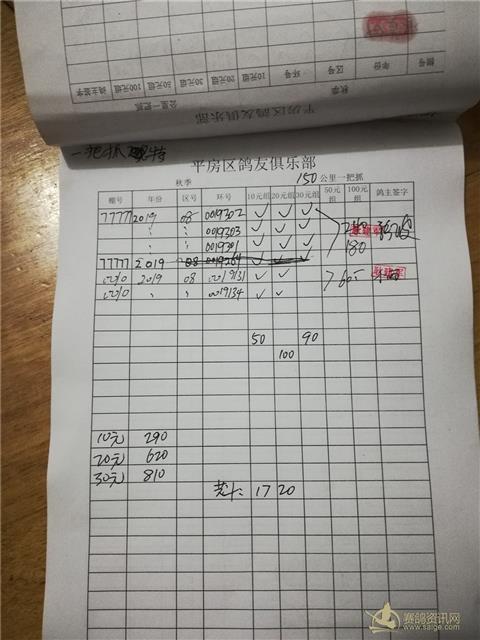 平房区鸽友俱乐部
公里一把抓
秋季
棚号 年份 区号 环号 10元组 20元组 30元组 100元组 鸽主签字
一把抓
平房区鸽友俱乐部
秋季 150公里一把抓
棚号 年份 区号 环号 10元组 20元组 30元组 50元组 100元组 鸽主签字
77777 2019 08 0019302 ✓ ✓ ✓
〃 〃 0019303 ✓ ✓ ✓
〃 〃 0019301 ✓ ✓ ✓ 180
77777 2019 08
2019 08 0019131 ✓ ✓ 60
〃 〃 0019134 ✓ ✓
50 90
100
10元 290
20元 620
30元 810
共计: 1720
赛鸽资讯网
www.saige.com